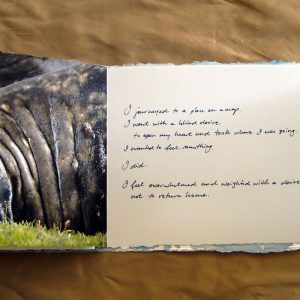 I journeyed to a place on a map.
I went with a blind desire
to open my heart and taste where I was going.
I wanted to feel something.
I did.
I feel overwhelmed and weighted with a desire
not to return home.